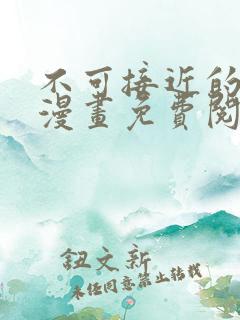 不可接近的
漫畫免費閱
鈕文新
未經同意禁止轉載